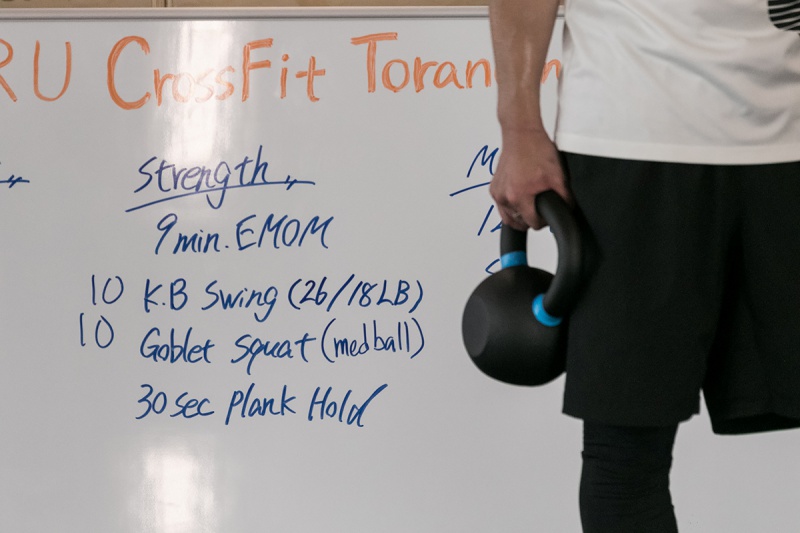 RU CrossFit Toranom
Strength
9 min. EMOM
10 K.B Swing (26/18LB)
10 Goblet squat (medball)
30 sec Plank Hold